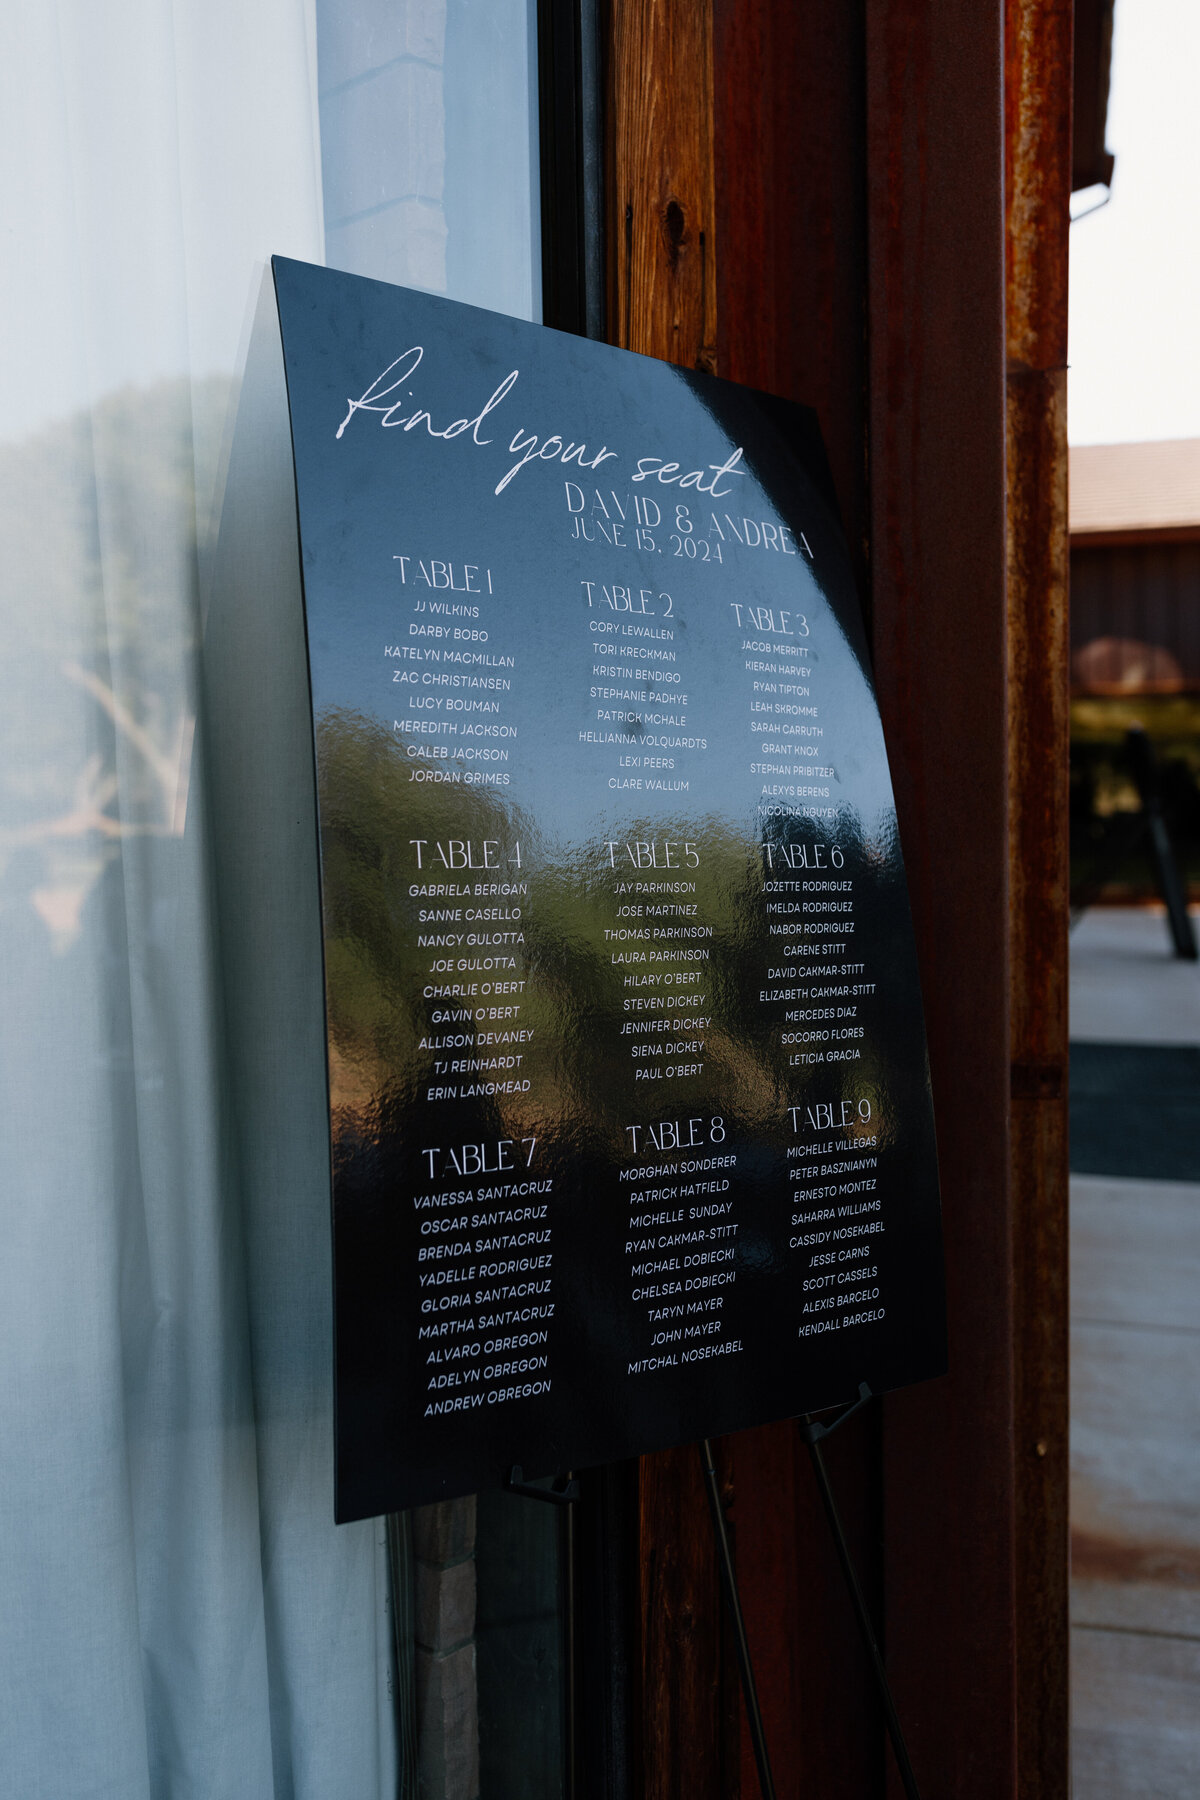 find your seat
DAVID & ANDREA
JUNE 15, 2024
TABLE 1
JJ WILKINS
DARBY BOBO
KATELYN MACMILLAN
ZAC CHRISTIANSEN
LUCY BOUMAN
MEREDITH JACKSON
CALEB JACKSON
JORDAN GRIMES
TABLE 2
CORY LEWALLEN
TORI KRECKMAN
KRISTIN BENDIGO
STEPHANIE PADHYE
PATRICK MCHALE
HELLIANNA VOLQUARDTS
LEXI PEERS
CLARE WALLUM
TABLE 3
JACOB MERRITT
KIERAN HARVEY
RYAN TIPTON
LEAH SKROMME
SARAH CARRUTH
GRANT KNOX
STEPHAN PRIBITZER
ALEXYS BERENS
NICOLINA NGUYEN
TABLE 4
GABRIELA BERIGAN
SANNE CASELLO
NANCY GULOTTA
JOE GULOTTA
CHARLIE O'BERT
GAVIN O'BERT
ALLISON DEVANEY
TJ REINHARDT
ERIN LANGMEAD
TABLE 5
JAY PARKINSON
JOSE MARTINEZ
THOMAS PARKINSON
LAURA PARKINSON
HILARY O'BERT
STEVEN DICKEY
JENNIFER DICKEY
SIENA DICKEY
PAUL O'BERT
TABLE 6
JOZETTE RODRIGUEZ
IMELDA RODRIGUEZ
NABOR RODRIGUEZ
CARENE STITT
DAVID CAKMAR-STITT
ELIZABETH CAKMAR-STITT
MERCEDES DIAZ
SOCORRO FLORES
LETICIA GRACIA
TABLE 7
VANESSA SANTACRUZ
OSCAR SANTACRUZ
BRENDA SANTACRUZ
YADELLE RODRIGUEZ
GLORIA SANTACRUZ
MARTHA SANTACRUZ
ALVARO OBREGON
ADELYN OBREGON
ANDREW OBREGON
TABLE 8
MORGHAN SONDERER
PATRICK HATFIELD
MICHELLE SUNDAY
RYAN CAKMAR-STITT
MICHAEL DOBIECKI
CHELSEA DOBIECKI
TARYN MAYER
JOHN MAYER
MITCHAL NOSEKABEL
TABLE 9
MICHELLE VILLEGAS
PETER BASZNIANYN
ERNESTO MONTEZ
SAHARRA WILLIAMS
CASSIDY NOSEKABEL
JESSE CARNS
SCOTT CASSELS
ALEXIS BARCELO
KENDALL BARCELO